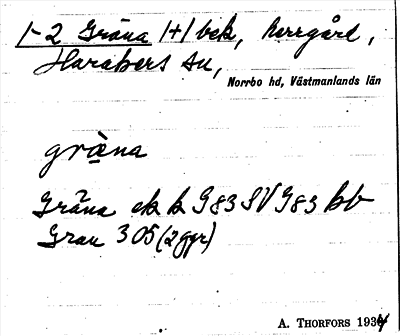 1-2 Gräna /+/ bek, herrgård,
Harakers sn,
Norrbo hd, Västmanlands län
gräna
Gräna ek k G83 SV G83 bb
Gran 305 (2 ggr)
A. THORFORS 1934